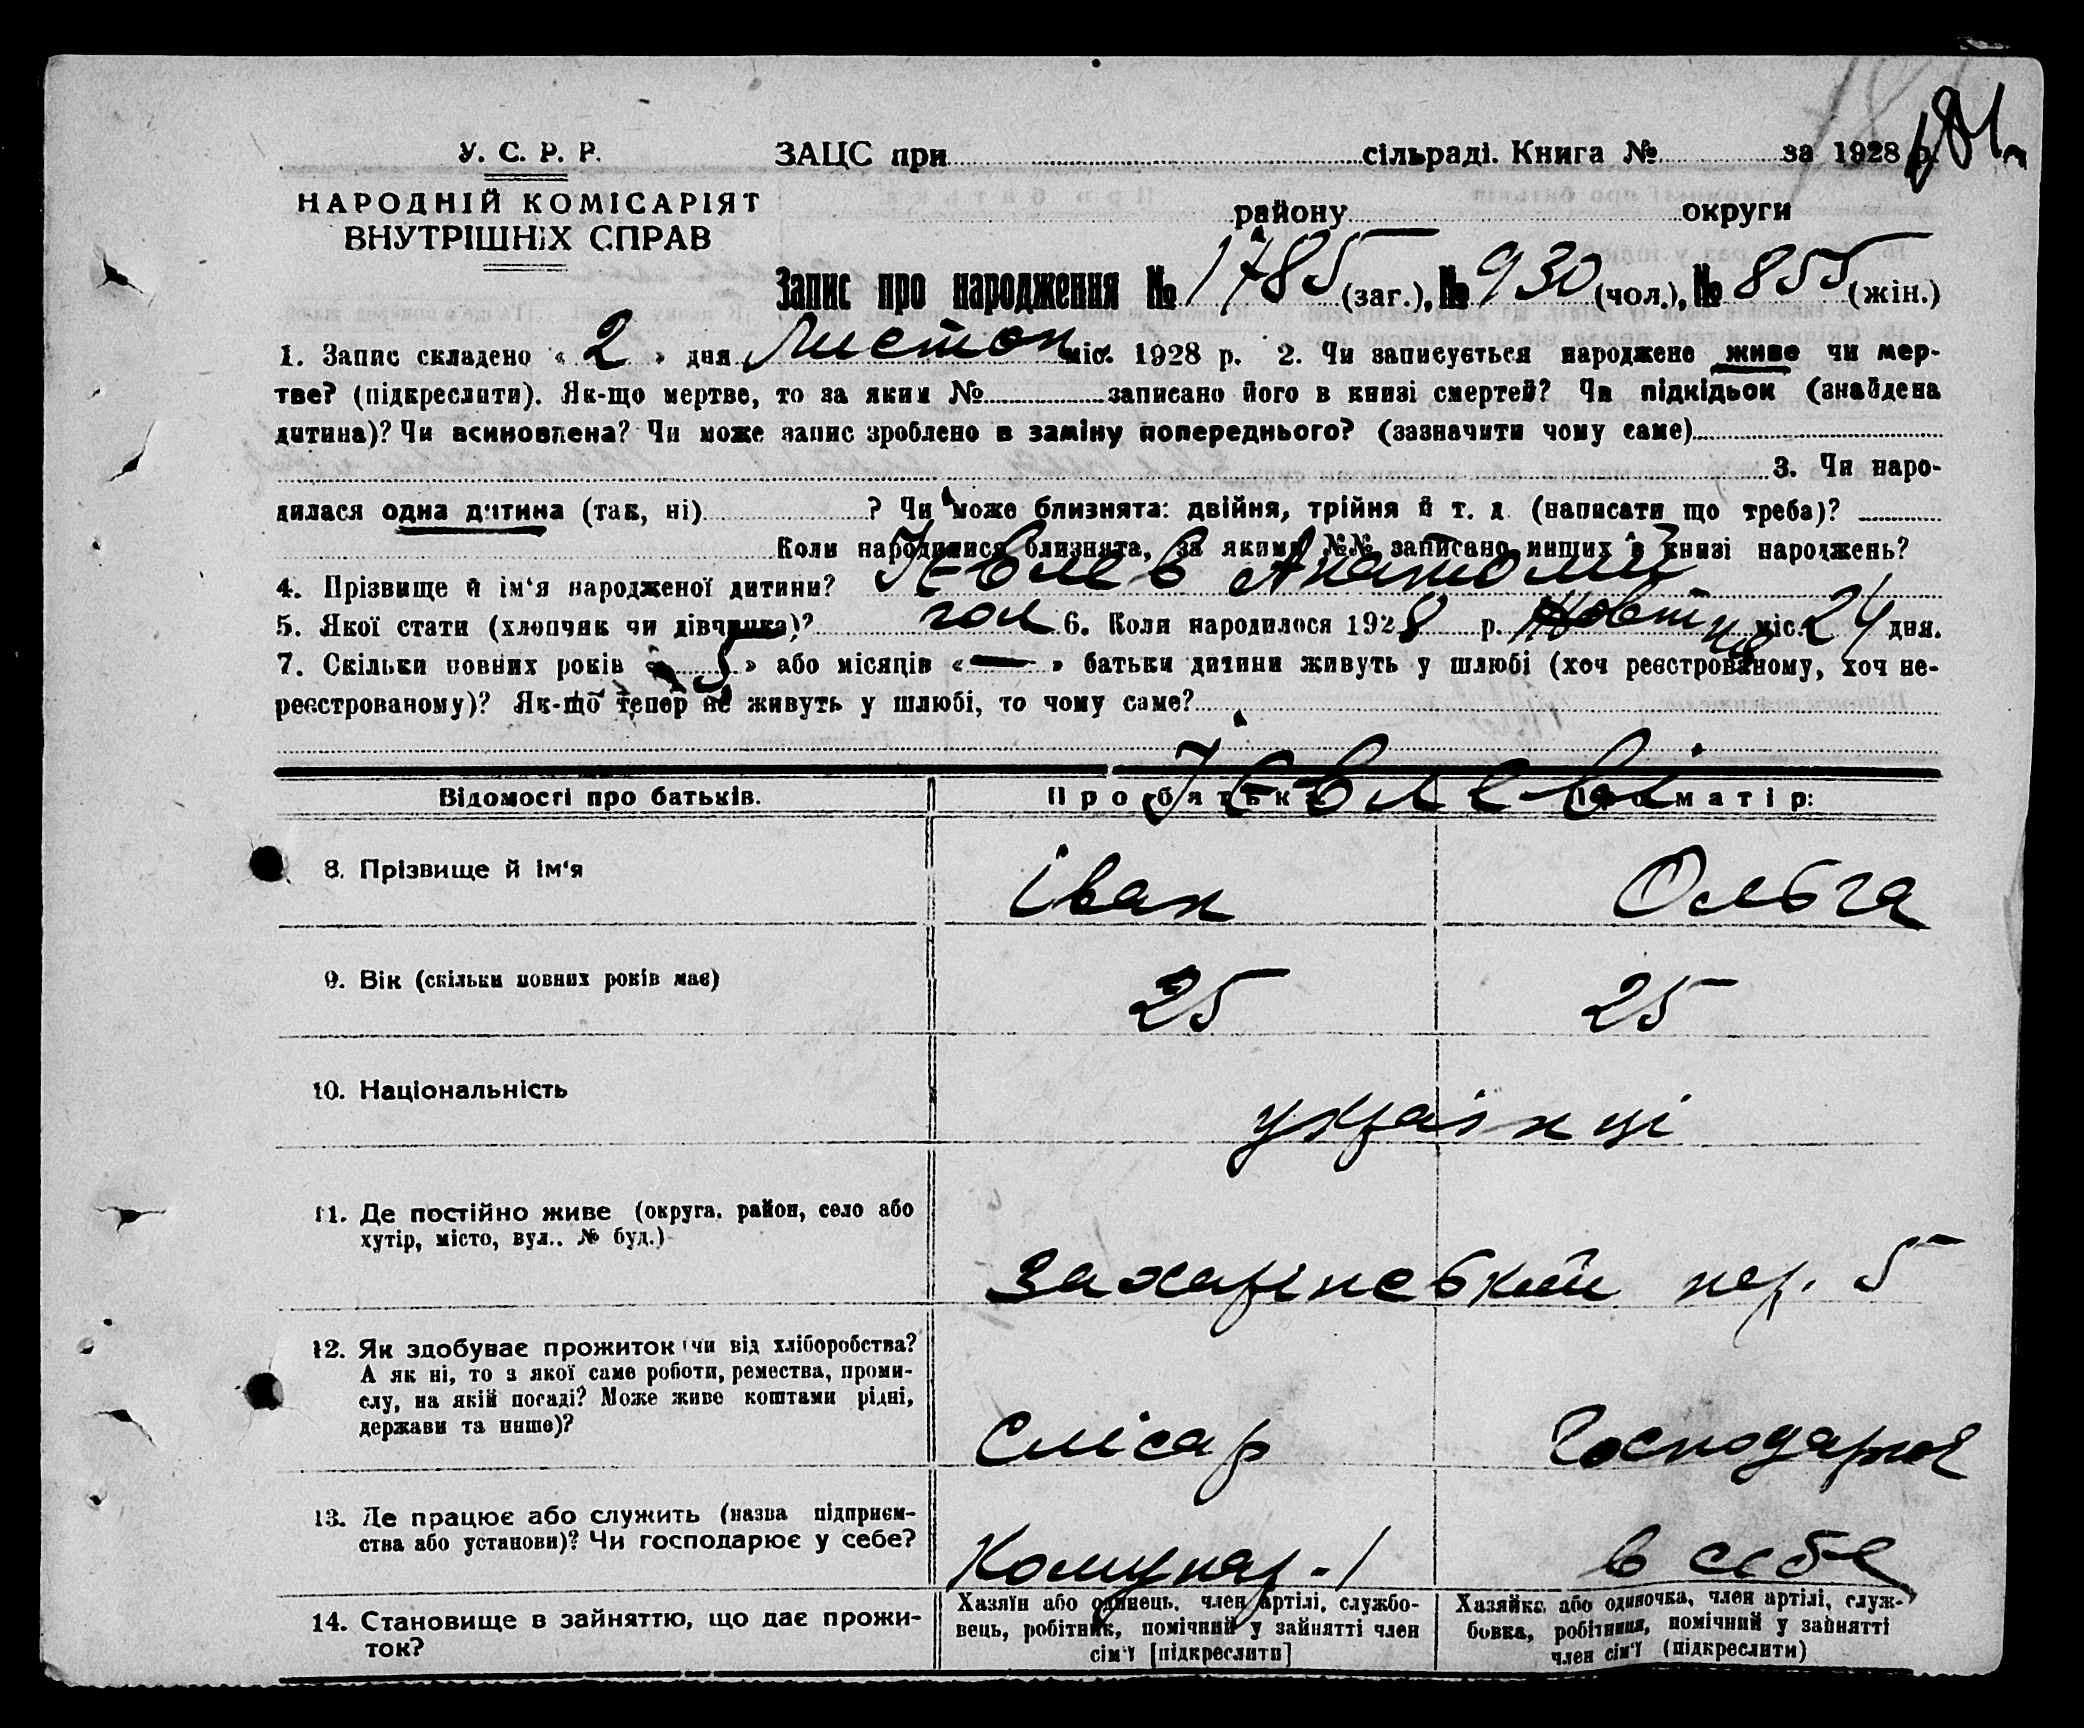 181
У. С. Р. Р.
ЗАЦС при сільраді. Книга № за 1928 р.
НАРОДНІЙ КОМІСАРІЯТ
ВНУТРІШНІХ СПРАВ
району округи
Запис про народження № 1785 (заг.), № 930 (чол.), № 855 (жін.)
1. Запис складено « 2 » дня Листоп міс. 1928 р. 2. Чи записується народжене живе чи мер-
тве? (підкреслити). Як-що мертве, то за яким № записано його в книзі смертей? Чи підкідьок (знайдена
дитина)? Чи всиновлена? Чи може запис зроблено в заміну попереднього? (зазначити чому саме)
3. Чи наро-
дилася одна дитина (так, ні) ? Чи може близнята: двійня, трійня й т. д. (написати що треба)?
Коли народилися близнята, за якими №№ записано инших в книзі народжень?
4. Прізвище й ім'я народженої дитини? Ієвлев Анатолій
5. Якої стати (хлопчик чи дівчинка)? чол 6. Коли народилося 1928 р. Жовтня міс. 24 дня.
7. Скільки повних років « 5 » або місяців « — » батьки дитини живуть у шлюбі (хоч реєстрованому, хоч не-
реєстрованому)? Як-що тепер не живуть у шлюбі, то чому саме?
Ієвлеві
Відомості про батьків. Про батька Про матір:
8. Прізвище й ім'я Іван Ольга
9. Вік (скільки повних років має) 25 25
10. Національність українці
11. Де постійно живе (округа, район, село або
хутір, місто, вул.. № буд.)
Захаріневський пер. 5
12. Як здобуває прожиток (чи від хліборобства?
А як ні, то з якої саме роботи, ремества, проми-
слу, на якій посаді? Може живе коштами рідні,
держави та инше)?
Слісар Господарює
13. Де працює або служить (назва підприєм-
ства або установи)? Чи господарює у себе?
Комунар-1 в себе
14. Становище в зайняттю, що дає прожи-
ток?
Хазяїн або одинець, член артілі, службо-
вець, робітник, помічний у зайнятті член
сім'ї [підкреслити]
Хазяйка або одиночка, член артілі, служ-
бовка, робітниця, помічний у зайнятті
член сім'ї (підкреслити)